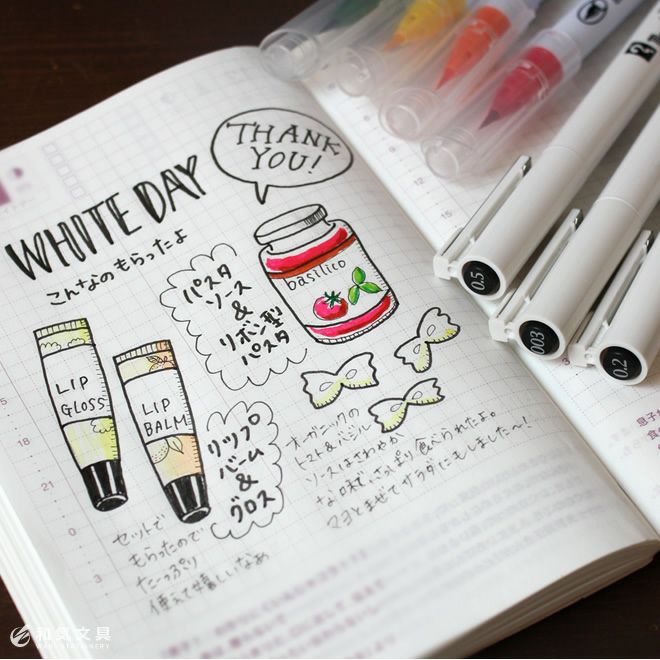 THANK
YOU!
WHITE DAY
こんなのもらったよ
パスタ
ソース
&
リボン型
パスタ
basilico
LIP
GLOSS
LIP
BALM
リップ
バーム&
グロス
オーガニックの
トマト&バジル
ソースはさわやか
な味でさっぱり食べられたよ。
マヨとまぜてサラダにもしました〜!
セットで
もらったので
たーっぷり
使えて嬉しいなあ
0.5
003
0.2
2
9
12
15
18
21
0
3
息子
和気文具
WAKI STATIONERY